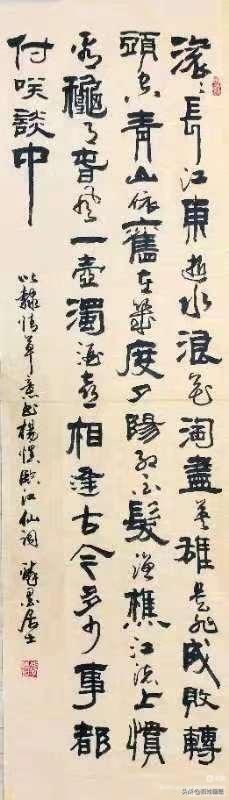 滚〻長江東逝水浪花淘盡英雄是非成敗轉
頭空青山依舊在幾度夕陽紅白髮漁樵江渚上慣
看穐月春風一壺濁酒喜相逢古今多少事都
付咲談中
以隸情草意書楊慎臨江仙詞 醉墨居士